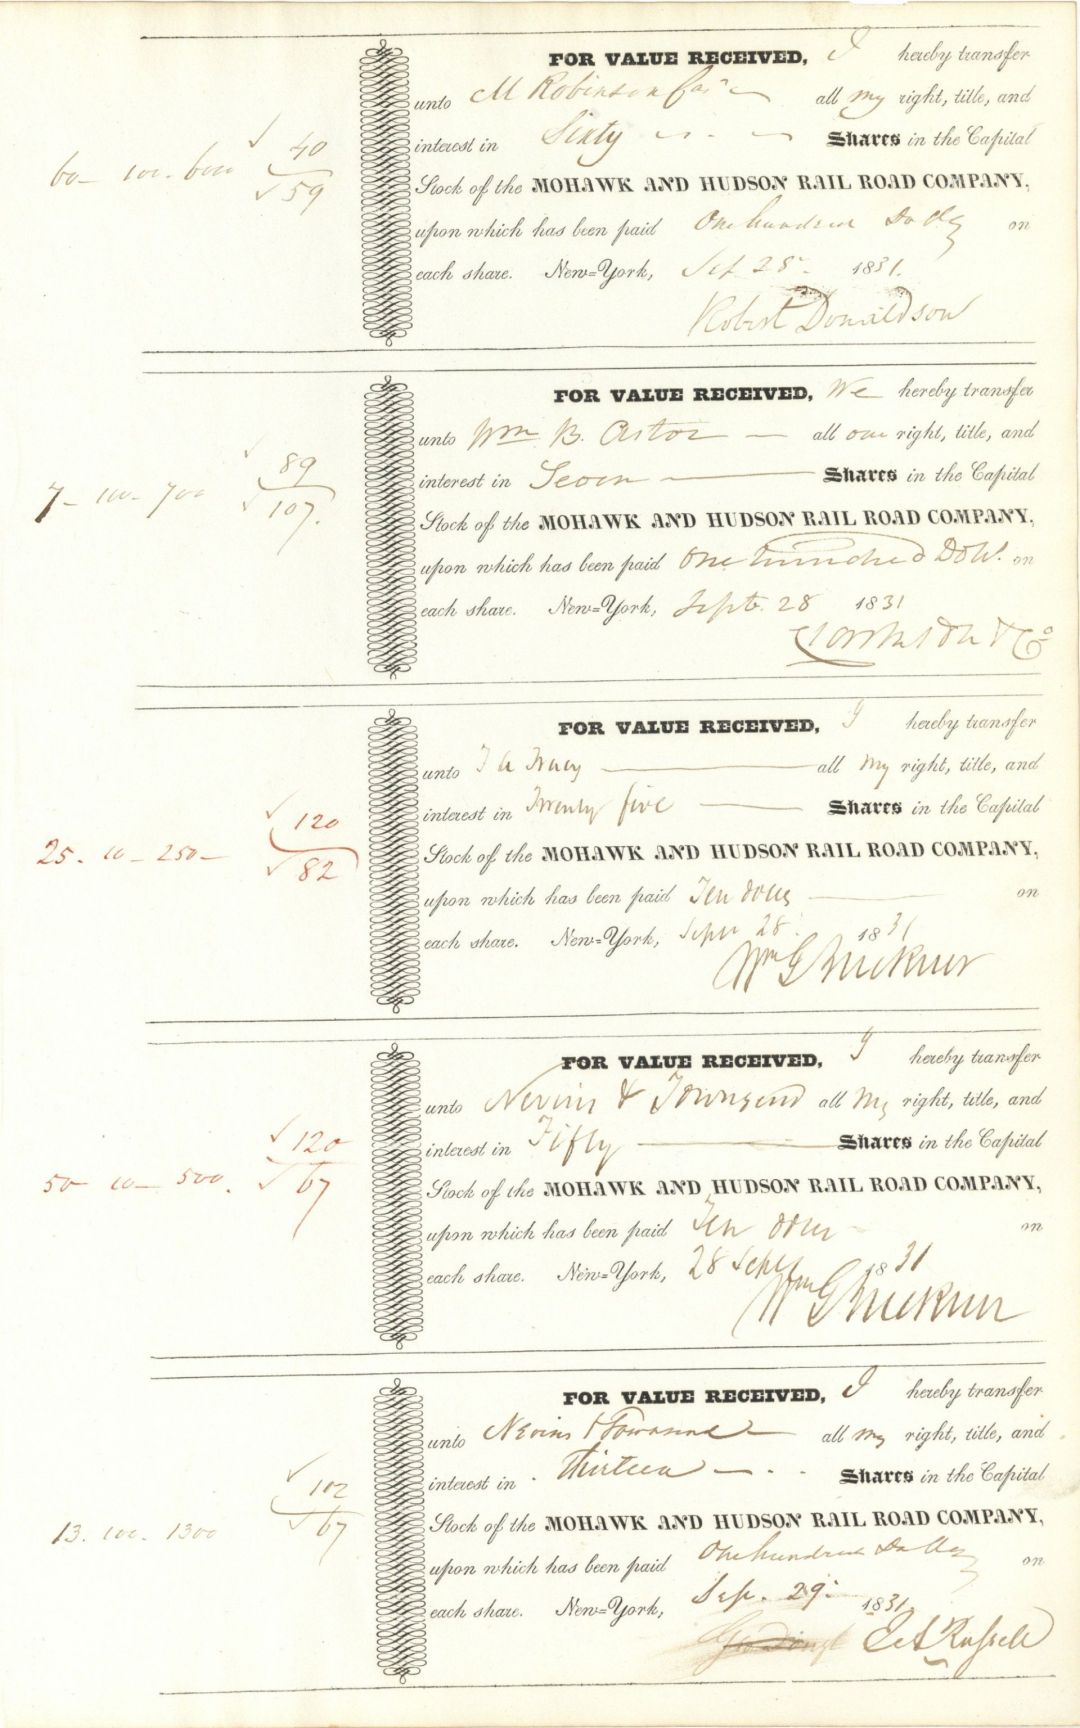 FOR VALUE RECEIVED, I hereby transfer
unto M Robinson all my right, title, and
60 - 100 - 6000 40 interest in Sixty Shares in the Capital
59 Stock of the MOHAWK AND HUDSON RAIL ROAD COMPANY,
upon which has been paid One hundred Dolls on
each share. New=York, Sep 28 1831.
Robert Donaldson
FOR VALUE RECEIVED, We hereby transfer
unto Wm B. Astor all our right, title, and
7 - 100 - 700 89 interest in Seven Shares in the Capital
107. Stock of the MOHAWK AND HUDSON RAIL ROAD COMPANY,
upon which has been paid One hundred Doll. on
each share. New=York, Sept. 28 1831
& Co
FOR VALUE RECEIVED, I hereby transfer
unto Tracy all my right, title, and
interest in Twenty five Shares in the Capital
25 - 10 - 250 - 120 82 Stock of the MOHAWK AND HUDSON RAIL ROAD COMPANY,
upon which has been paid Ten dolls on
each share. New=York, Sept 28 1831
Wm G Buckner
FOR VALUE RECEIVED, I hereby transfer
unto Nevins & Townsend all my right, title, and
120 interest in Fifty Shares in the Capital
50 - 10 - 500. 67 Stock of the MOHAWK AND HUDSON RAIL ROAD COMPANY,
upon which has been paid Ten dolls on
each share. New=York, 28 Sept 1831
Wm G Buckner
FOR VALUE RECEIVED, I hereby transfer
unto Nevins & Townsend all my right, title, and
102 interest in Thirteen Shares in the Capital
13. 100. 1300 67 Stock of the MOHAWK AND HUDSON RAIL ROAD COMPANY,
upon which has been paid One hundred Dolls on
each share. New=York, Sep. 29 1831.
Russell